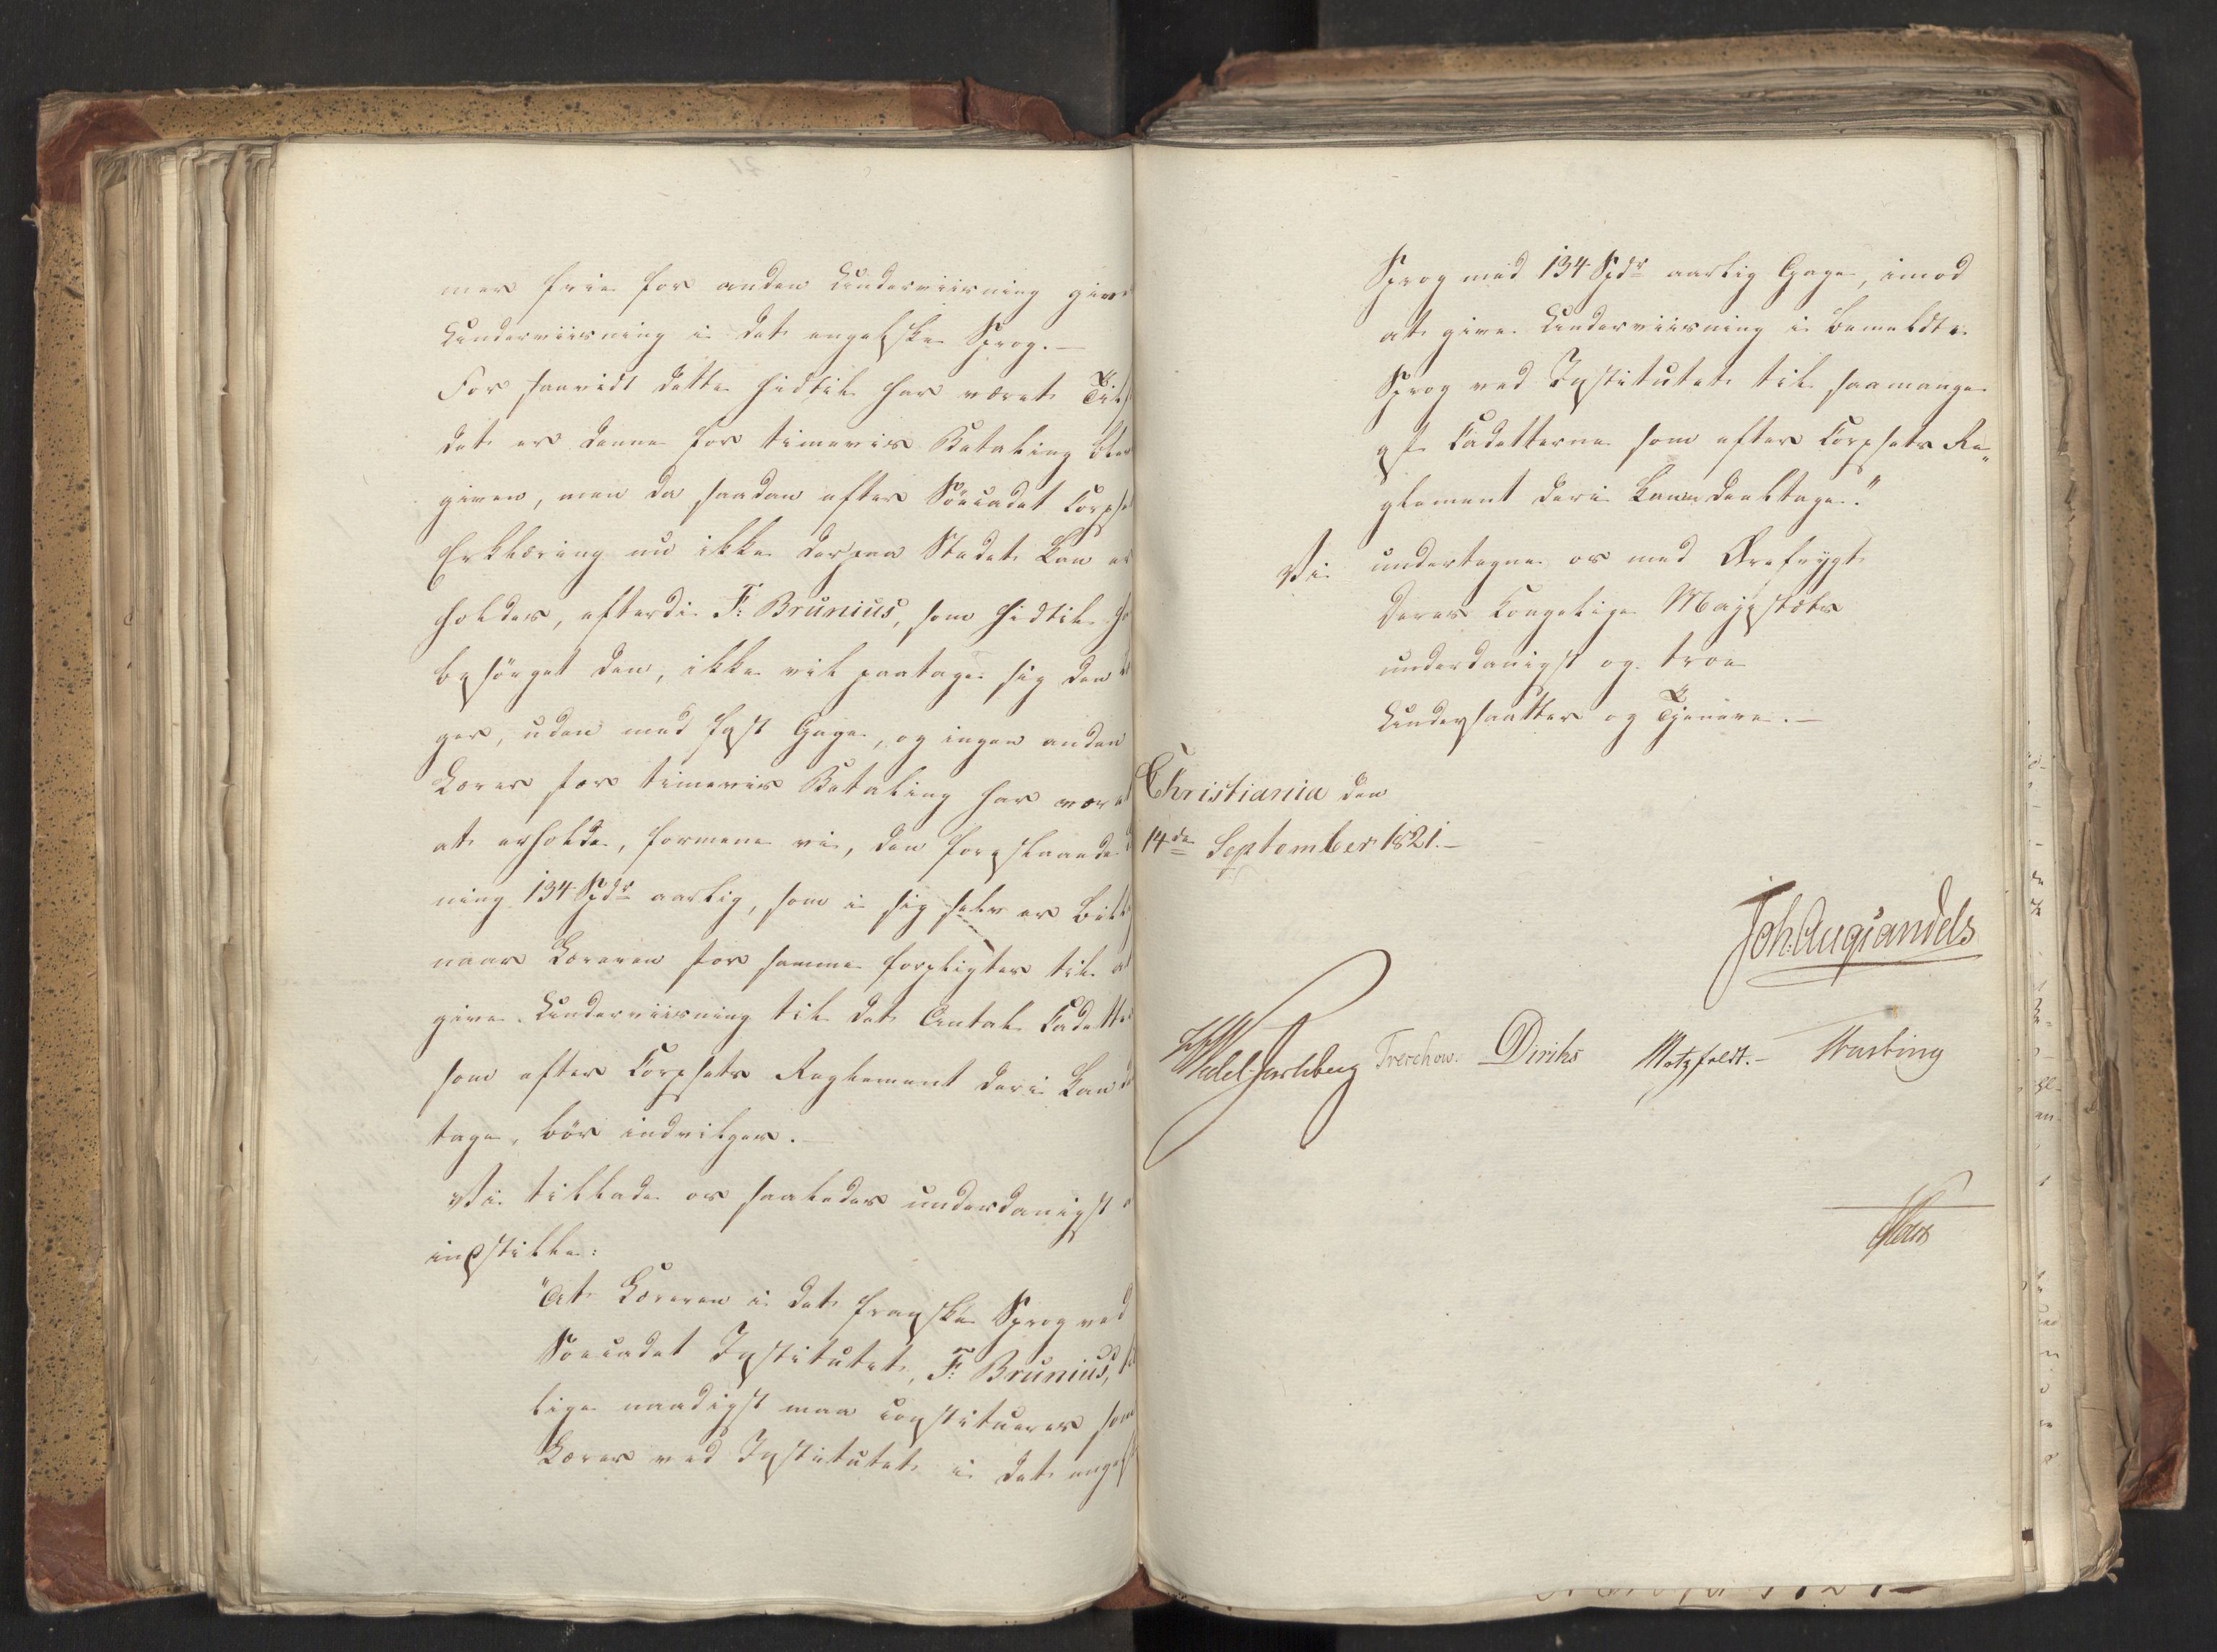 mer frie for anden Underviisning give
Underviisning i det engelske Sprog. —
For saavidt dette hidtil har været Til-
det er denne for timeviis Betaling blev
given, men da saadan efter Söecadet Corpset
Erklæring nu ikke der paa Stedet kan er
holdes, efterdi F: Brunius, som hidtil ha
besörget den, ikke vil paatage sig den
ger, uden med fast Gage, og ingen anden
Lærer for timeviis Betaling har været
at erholde, formene vi, den foreslaaede
ning 134 Spdr aarlig, som i sig selv er bil
naar Læreren for samme forpligtes til at
give Underviisning til det Antal Cadetter
som efter Corpsets Reglement deri kan
tage, bör indvilges. —
Vi tillade os saaledes underdanigst
indstille:
"At Læreren i det franske Sprog ved
Söecadet Institutet, F: Brunius,
lige naadigst maa constitueres som
Lærer ved Institutet i det engelsk
Sprog med 134 Spdr aarlig Gage, imod
at give Underviisning i bemeldte
Sprog ved Institutet til saamange
af Cadetterne som efter Corpsets Re„
glement deri kunne deeltage."
Vi undertegne os med Ærefrygt
Deres Kongelige Majestæts
underdanigst og troe
Undersaatter og Tjenere. —
Christiania den
14de September 1821. —
Joh: Aug Sandels
HWedel Jarlsberg Treschow. Diriks Motzfeldt. — Fasting